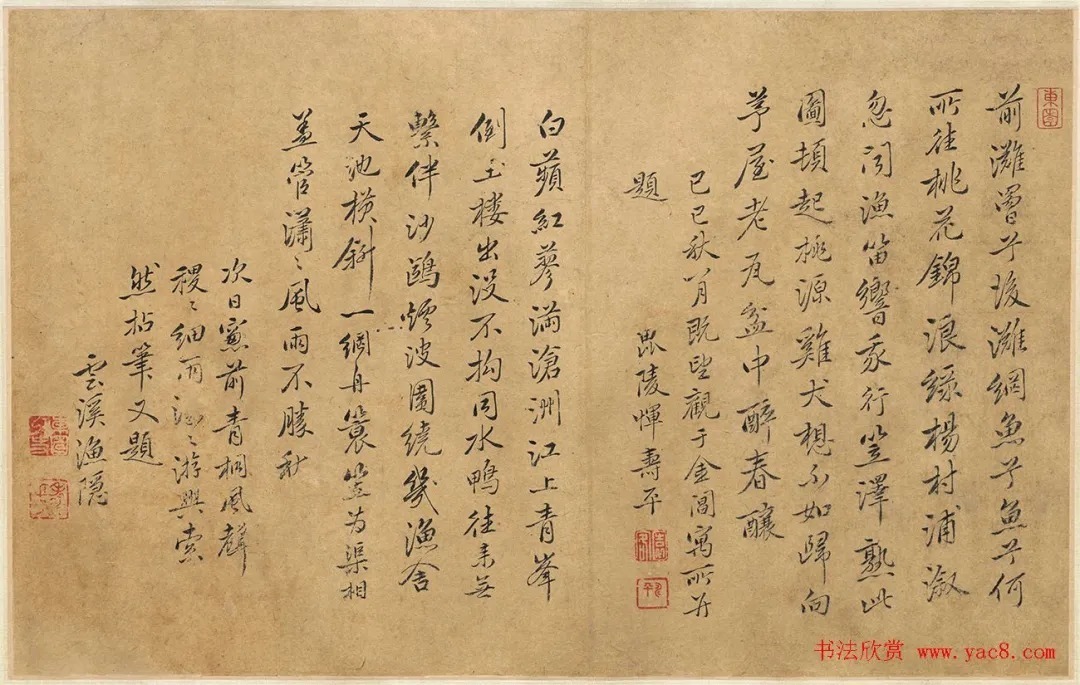 東園
前灘罾兮後灘網魚兮魚兮何
所往桃花錦浪綠楊村浦溆
忽聞漁笛響我行笠澤熟此
圖頓起桃源雞犬想不如歸向
茅屋老瓦盆中醉春釀
己巳秋八月既望觀于金閶寓所并
題 毘陵惲壽平
白蘋紅蓼滿滄洲江上青峯
倒玉樓出没不拘同水鴨往来無
繫伴沙鷗煙波圍繞幾漁舍
天池橫斜一網舟蓑笠為渠相
蓋管瀟〻風雨不勝秋
次日窻前青桐風聲
稷〻細雨〻游興索
然拈筆又題
雲溪漁隱
书法欣赏 www.yac8.com